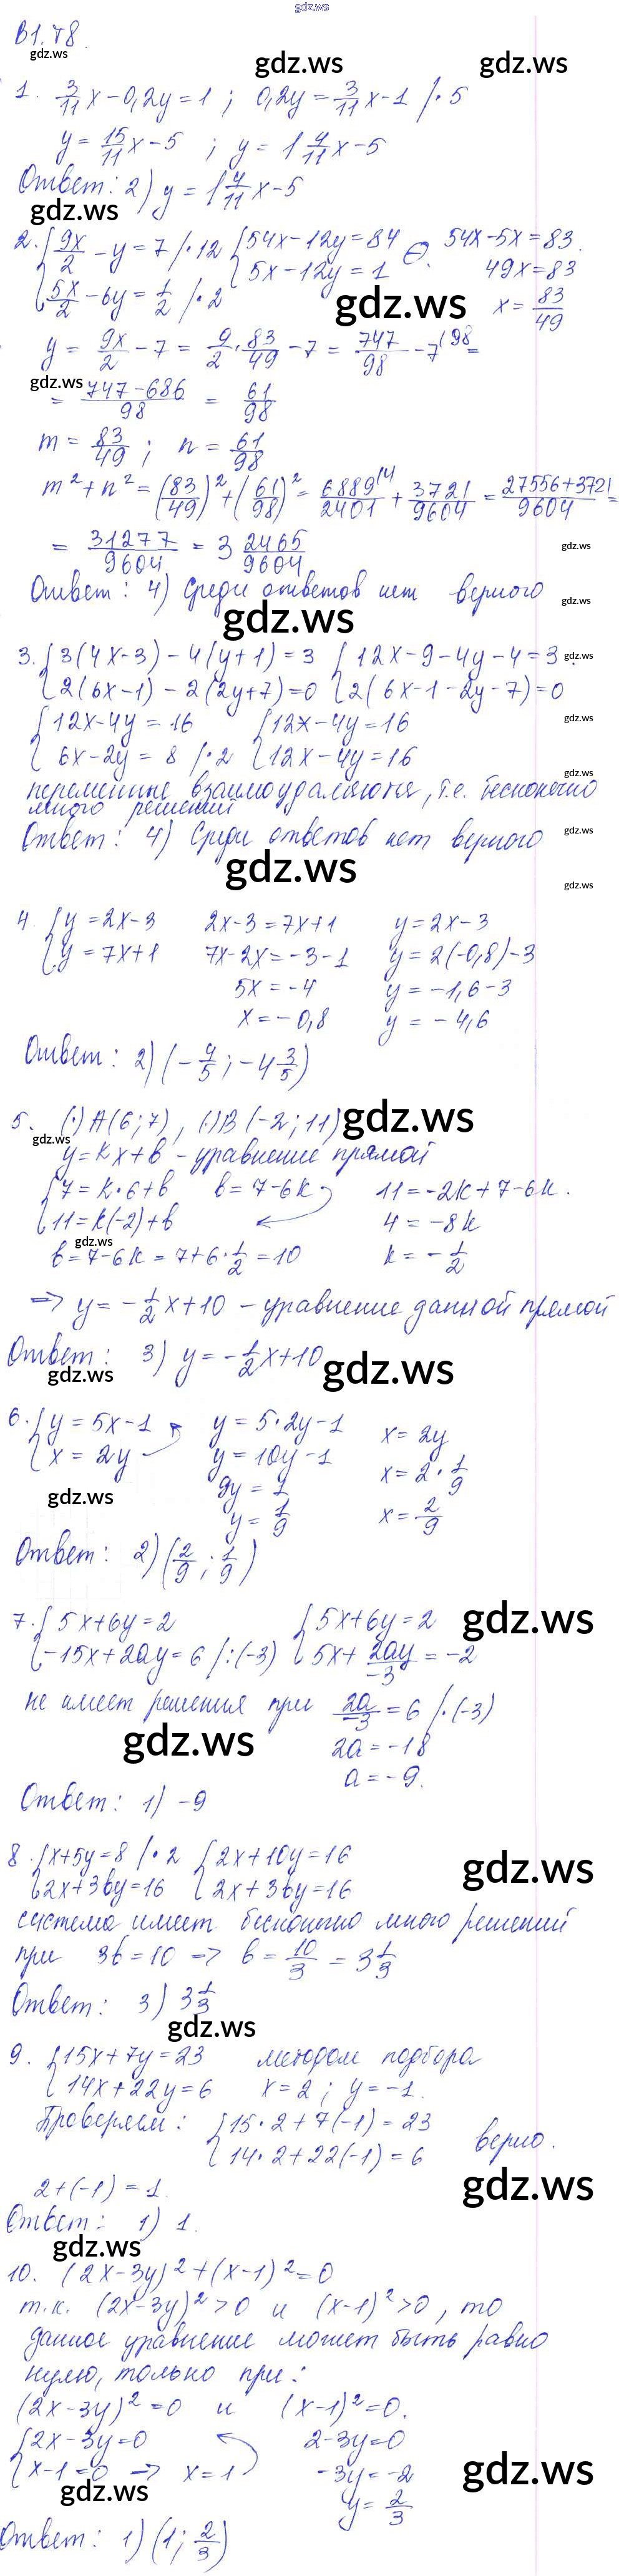 gdz.ws
В1.78.
gdz.ws
gdz.ws gdz.ws
1. 3/11 x - 0,2y = 1 ; 0,2y = 3/11 x - 1 /·5
y = 15/11 x - 5 ; y = 1 4/11 x - 5
Ответ: 2) y = 1 4/11 x - 5
gdz.ws
2. { 9x/2 - y = 7 /·12 { 54x - 12y = 84 ⊖. 54x - 5x = 83.
5x/2 - 6y = 1/2 /·2 5x - 12y = 1 49x = 83
gdz.ws x = 83/49
y = 9x/2 - 7 = 9/2 · 83/49 - 7 = 747/98 - 7^(98 =
gdz.ws
= (747 - 686)/98 = 61/98
m = 83/49 ; n = 61/98
m² + n² = (83/49)² + (61/98)² = 6889^(4/2401 + 3721/9604 = (27556 + 3721)/9604 =
= 31277/9604 = 3 2465/9604
gdz.ws
Ответ: 4) Среди ответов нет верного
gdz.ws
gdz.ws
3. { 3(4x-3) - 4(y+1) = 3 { 12x - 9 - 4y - 4 = 3
gdz.ws
2(6x-1) - 2(2y+7) = 0 2(6x-1-2y-7) = 0
{ 12x - 4y = 16 { 12x - 4y = 16
gdz.ws
6x - 2y = 8 /·2 12x - 4y = 16
gdz.ws
переменные взаимоудаляются, т.е. бесконечно
много решений
Ответ: 4) Среди ответов нет верного
gdz.ws
gdz.ws
gdz.ws
4. { y = 2x - 3 2x - 3 = 7x + 1 y = 2x - 3
y = 7x + 1 7x - 2x = -3 - 1 y = 2(-0,8) - 3
5x = -4 y = -1,6 - 3
x = -0,8 y = -4,6
Ответ: 2) (-4/5 ; -4 3/5)
5. (·)A(6;7), (·)B(-2;11) gdz.ws
gdz.ws
y = kx + b - уравнение прямой
{ 7 = k·6 + b b = 7 - 6k 11 = -2k + 7 - 6k.
11 = k(-2) + b 4 = -8k
gdz.ws
b = 7 - 6k = 7 + 6·1/2 = 10 k = -1/2
=> y = -1/2 x + 10 - уравнение данной прямой
Ответ: 3) y = -1/2 x + 10
gdz.ws gdz.ws
6. { y = 5x - 1 y = 5·2y - 1 x = 2y
x = 2y y = 10y - 1 x = 2·1/9
9y = 1 x = 2/9
gdz.ws
y = 1/9
Ответ: 2) (2/9 ; 1/9)
7. { 5x + 6y = 2 { 5x + 6y = 2 gdz.ws
-15x + 2ay = 6 /:(-3) 5x + 2ay/-3 = -2
не имеет решения при 2a/-3 = 6 /·(-3)
gdz.ws 2a = -18
a = -9.
Ответ: 1) -9
8. { x + 5y = 8 /·2 { 2x + 10y = 16 gdz.ws
2x + 3by = 16 2x + 3by = 16
система имеет бесконечно много решений
при 3b = 10 => b = 10/3 = 3 1/3
Ответ: 3) 3 1/3
gdz.ws
9. { 15x + 7y = 23 методом подбора
14x + 22y = 6 x = 2 ; y = -1.
Проверяем: { 15·2 + 7(-1) = 23 верно.
14·2 + 22(-1) = 6
2 + (-1) = 1. gdz.ws
Ответ: 1) 1.
gdz.ws
10. (2x - 3y)² + (x - 1)² = 0
т.к. (2x - 3y)² > 0 и (x - 1)² > 0, то
данное уравнение может быть равно
нулю, только при:
(2x - 3y)² = 0 и (x - 1)² = 0.
{ 2x - 3y = 0 2 - 3y = 0
x - 1 = 0 -> x = 1 -3y = -2 gdz.ws
gdz.ws y = 2/3
Ответ: 1) (1; 2/3)